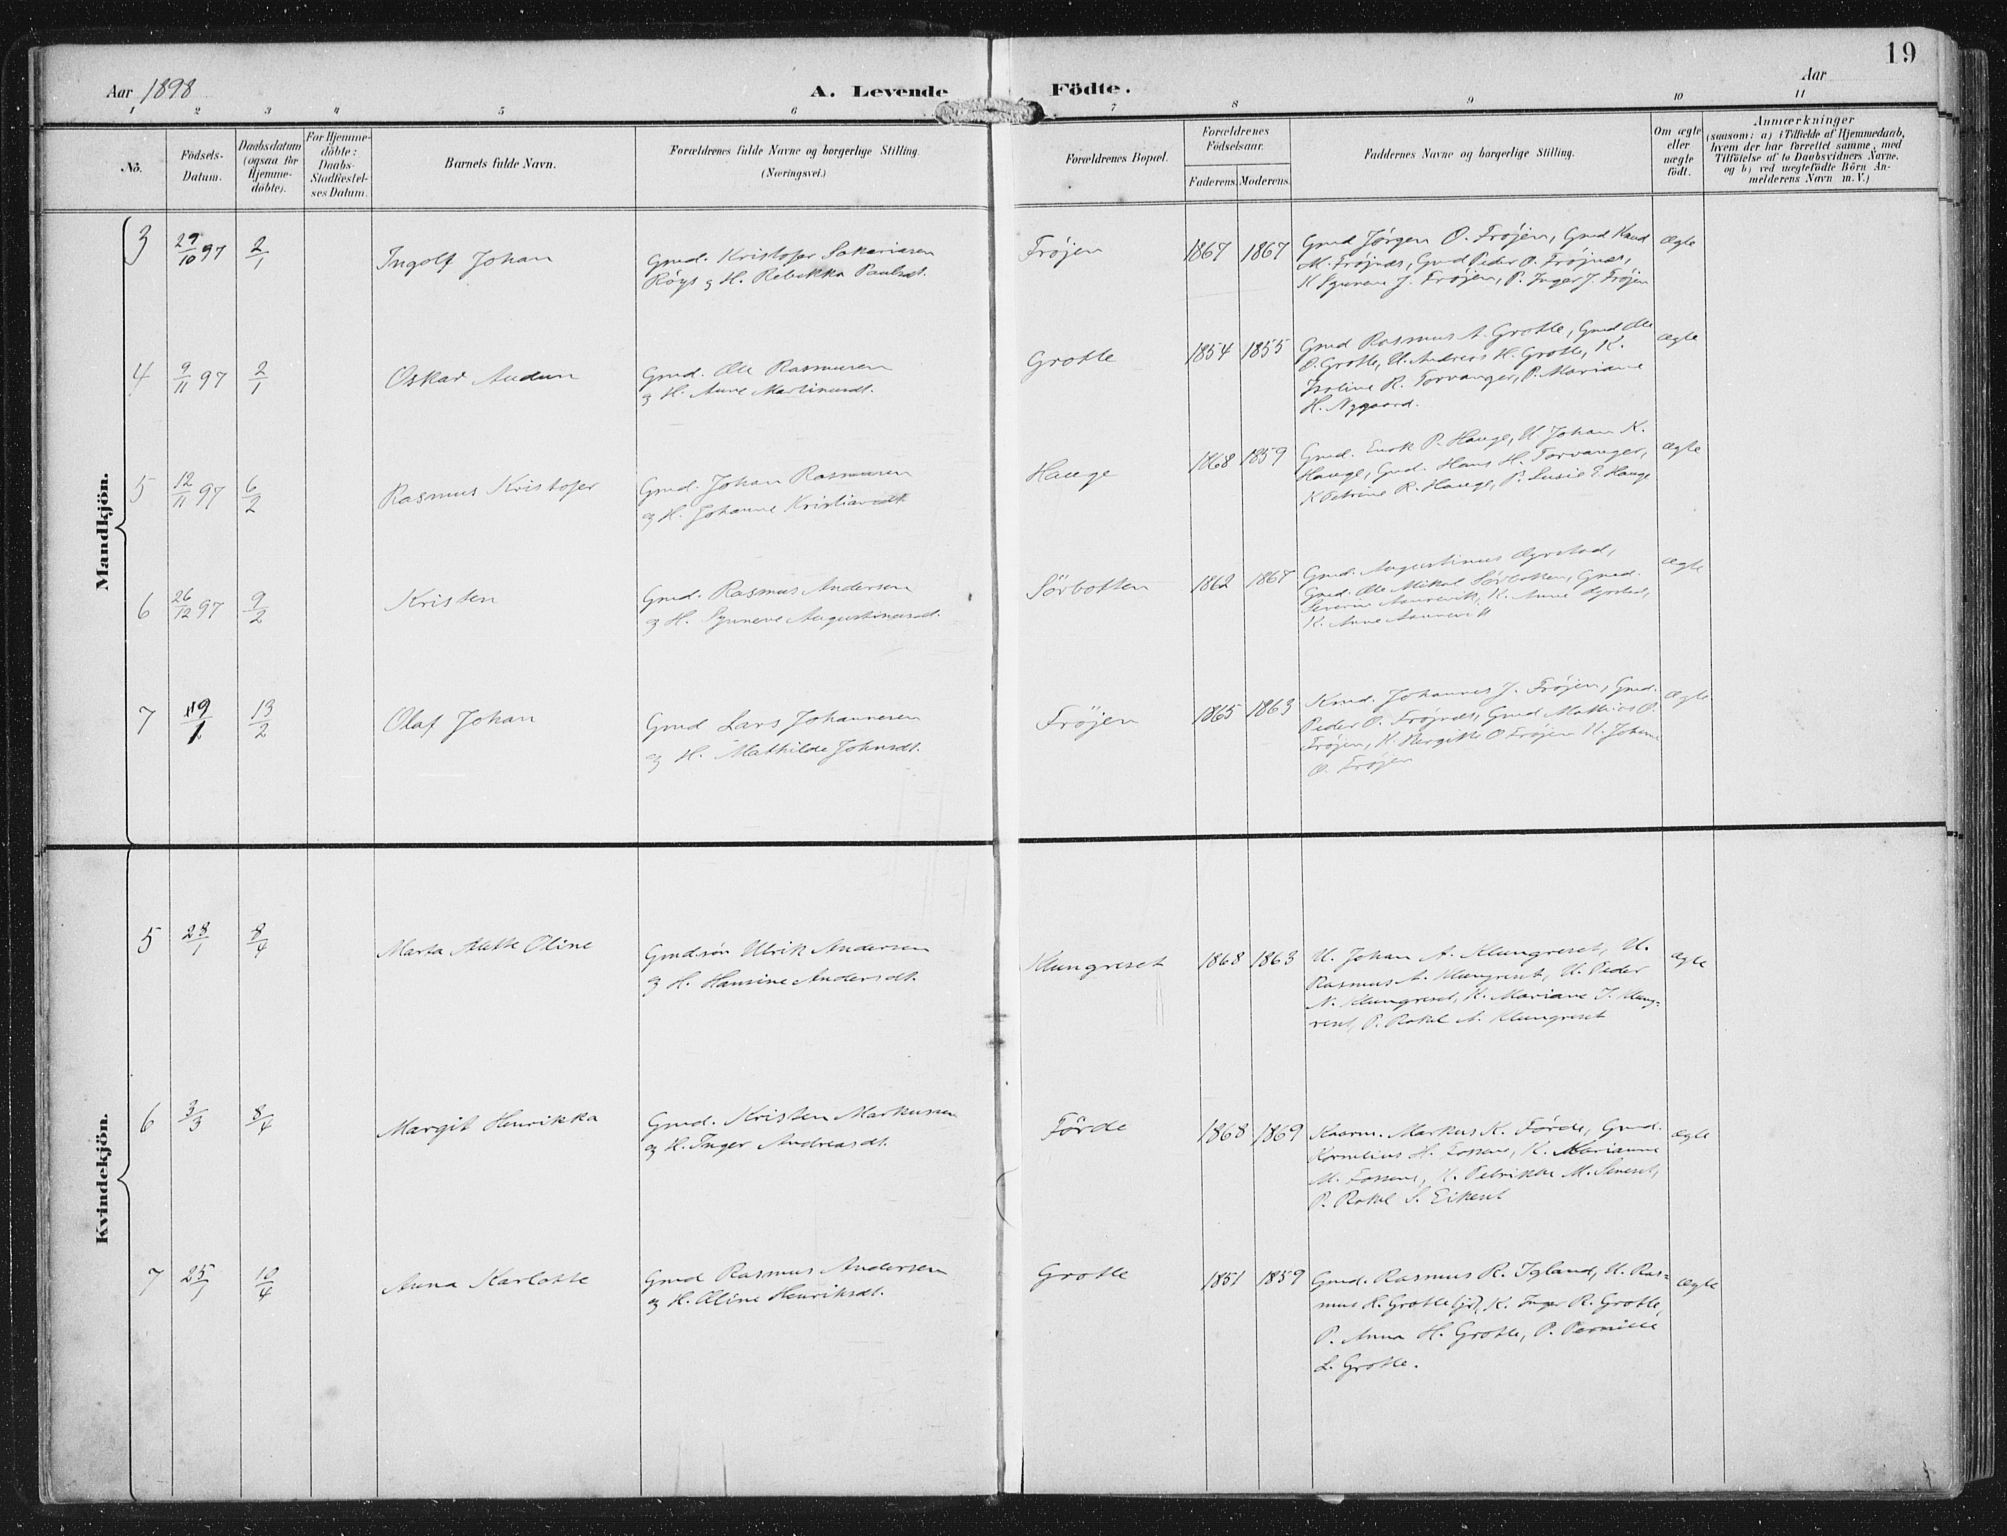 19
Aar 1898
A. Levende
Födte.
Aar
1 2 3 4 5 6 7 8 9 10 11
No.
Födsels-
Datum.
Daabsdatum
(ogsaa for
Hjemme-
döbte).
For Hjemme-
döbte:
Daabs-
Stadfæstel-
ses Datum.
Barnets fulde Navn.
Forældrenes fulde Navne og borgerlige Stilling.
(Næringsvei.)
Forældrenes Bopæl.
Forældrenes
Födselsaar.
Faderens. Moderens.
Faddernes Navne og borgerlige Stilling.
Om ægte
eller
uægte
födt.
Anmærkninger
(saasom: a) i Tilfælde af Hjemmedaab,
hvem der har forrettet samme, med
Tilföielse af to Daabsvidners Navne.
og b) ved uægtefödte Börn An-
melderens Navn m. V.)
Mandkjön.
3 29/10 97 2/1 Ingolf Johan
Gmd. Kristofer Sakariasen
Röys og H. Rebekka Paulsdt.
Fröjen 1867 1867
Gmd Jörgen O. Fröjen, Gmd Knud
M. Fröjnæs, Gmd Peder P. Fröjnæs,
K Synneve J. Fröjen, P. Inger J. Fröjen
ægte
4 9/11 97 2/1 Oskar Audun
Gmd. Ole Rasmusen
og H. Anne Martinusdt.
Grotle 1854 1855
Gmd Rasmus A. Grotle, Gmd Ole
O. Grotle, U. Andreas H. Grotle, K.
Isoline R. Torvanger, P. Mariane
H. Nygaard.
ægte
5 12/11 97 6/2 Rasmus Kristofer
Gmd. Johan Rasmusen
og H. Johanne Kristiansdt
Hauge 1868 1859
Gmd. Enok P. Hauge, U. Johan K.
Hauge, Gmd. Hans H. Torvanger,
K Petrine R. Hauge, P. Susie E. Hauge
ægte
6 26/12 97 9/2 Kristen
Gmd. Rasmus Andersen
og H. Synneve Augustinusdt.
Sörbotten 1862 1867
Gmd. Augustinus
Gmd. Ole Mikal Sörbotten, Gmd.
Severin K. Anne
K. Anne
ægte
7 19/1 13/2 Olaf Johan
Gmd Lars Johannesen
og H. Mathilde Johnsdt.
Fröjen 1865 1863
Kmd. Johannes J. Fröjen, Gmd.
Peder P. Fröjnæs, Gmd Mathias O.
Fröjen, K. Bergitte O Fröjen K. Johanne
O. Fröjen
ægte
Kvindekjön.
5 28/1 8/4 Marta Alette Oline
Gmdsön Ulrik Andersen
og H. Hansine Andersdt.
Klungreset 1868 1863
U. Johan A. Klungreset, U.
Rasmus A. Klungreset, U. Peder
N. Klungreset, K. Mariane J. Klung-
reset, P. Rakel A. Klungreset
ægte
6 3/3 8/4 Margit Henrikka
Gmd. Kristen Markussen
og H. Inger Andreasdt.
Förde 1868 1869
Kaarm. Markus K. Förde, Gmd.
Kornelius H. Fossene, K. Marianne
M. Fossene, K. Petrikke M. Seneset,
P. Rakel S. Eikeset
ægte
7 25/1 10/4 Anna Karlotte
Gmd Rasmus Andersen
og H. Oline Henriksdt.
Grotle 1851 1859
Gmd. Rasmus R. Igland, U. Ras-
mus H. Grotle K. Inger R. Grotle,
P. Anna H. Grotle, P. Pernille
L. Grotle.
ægte